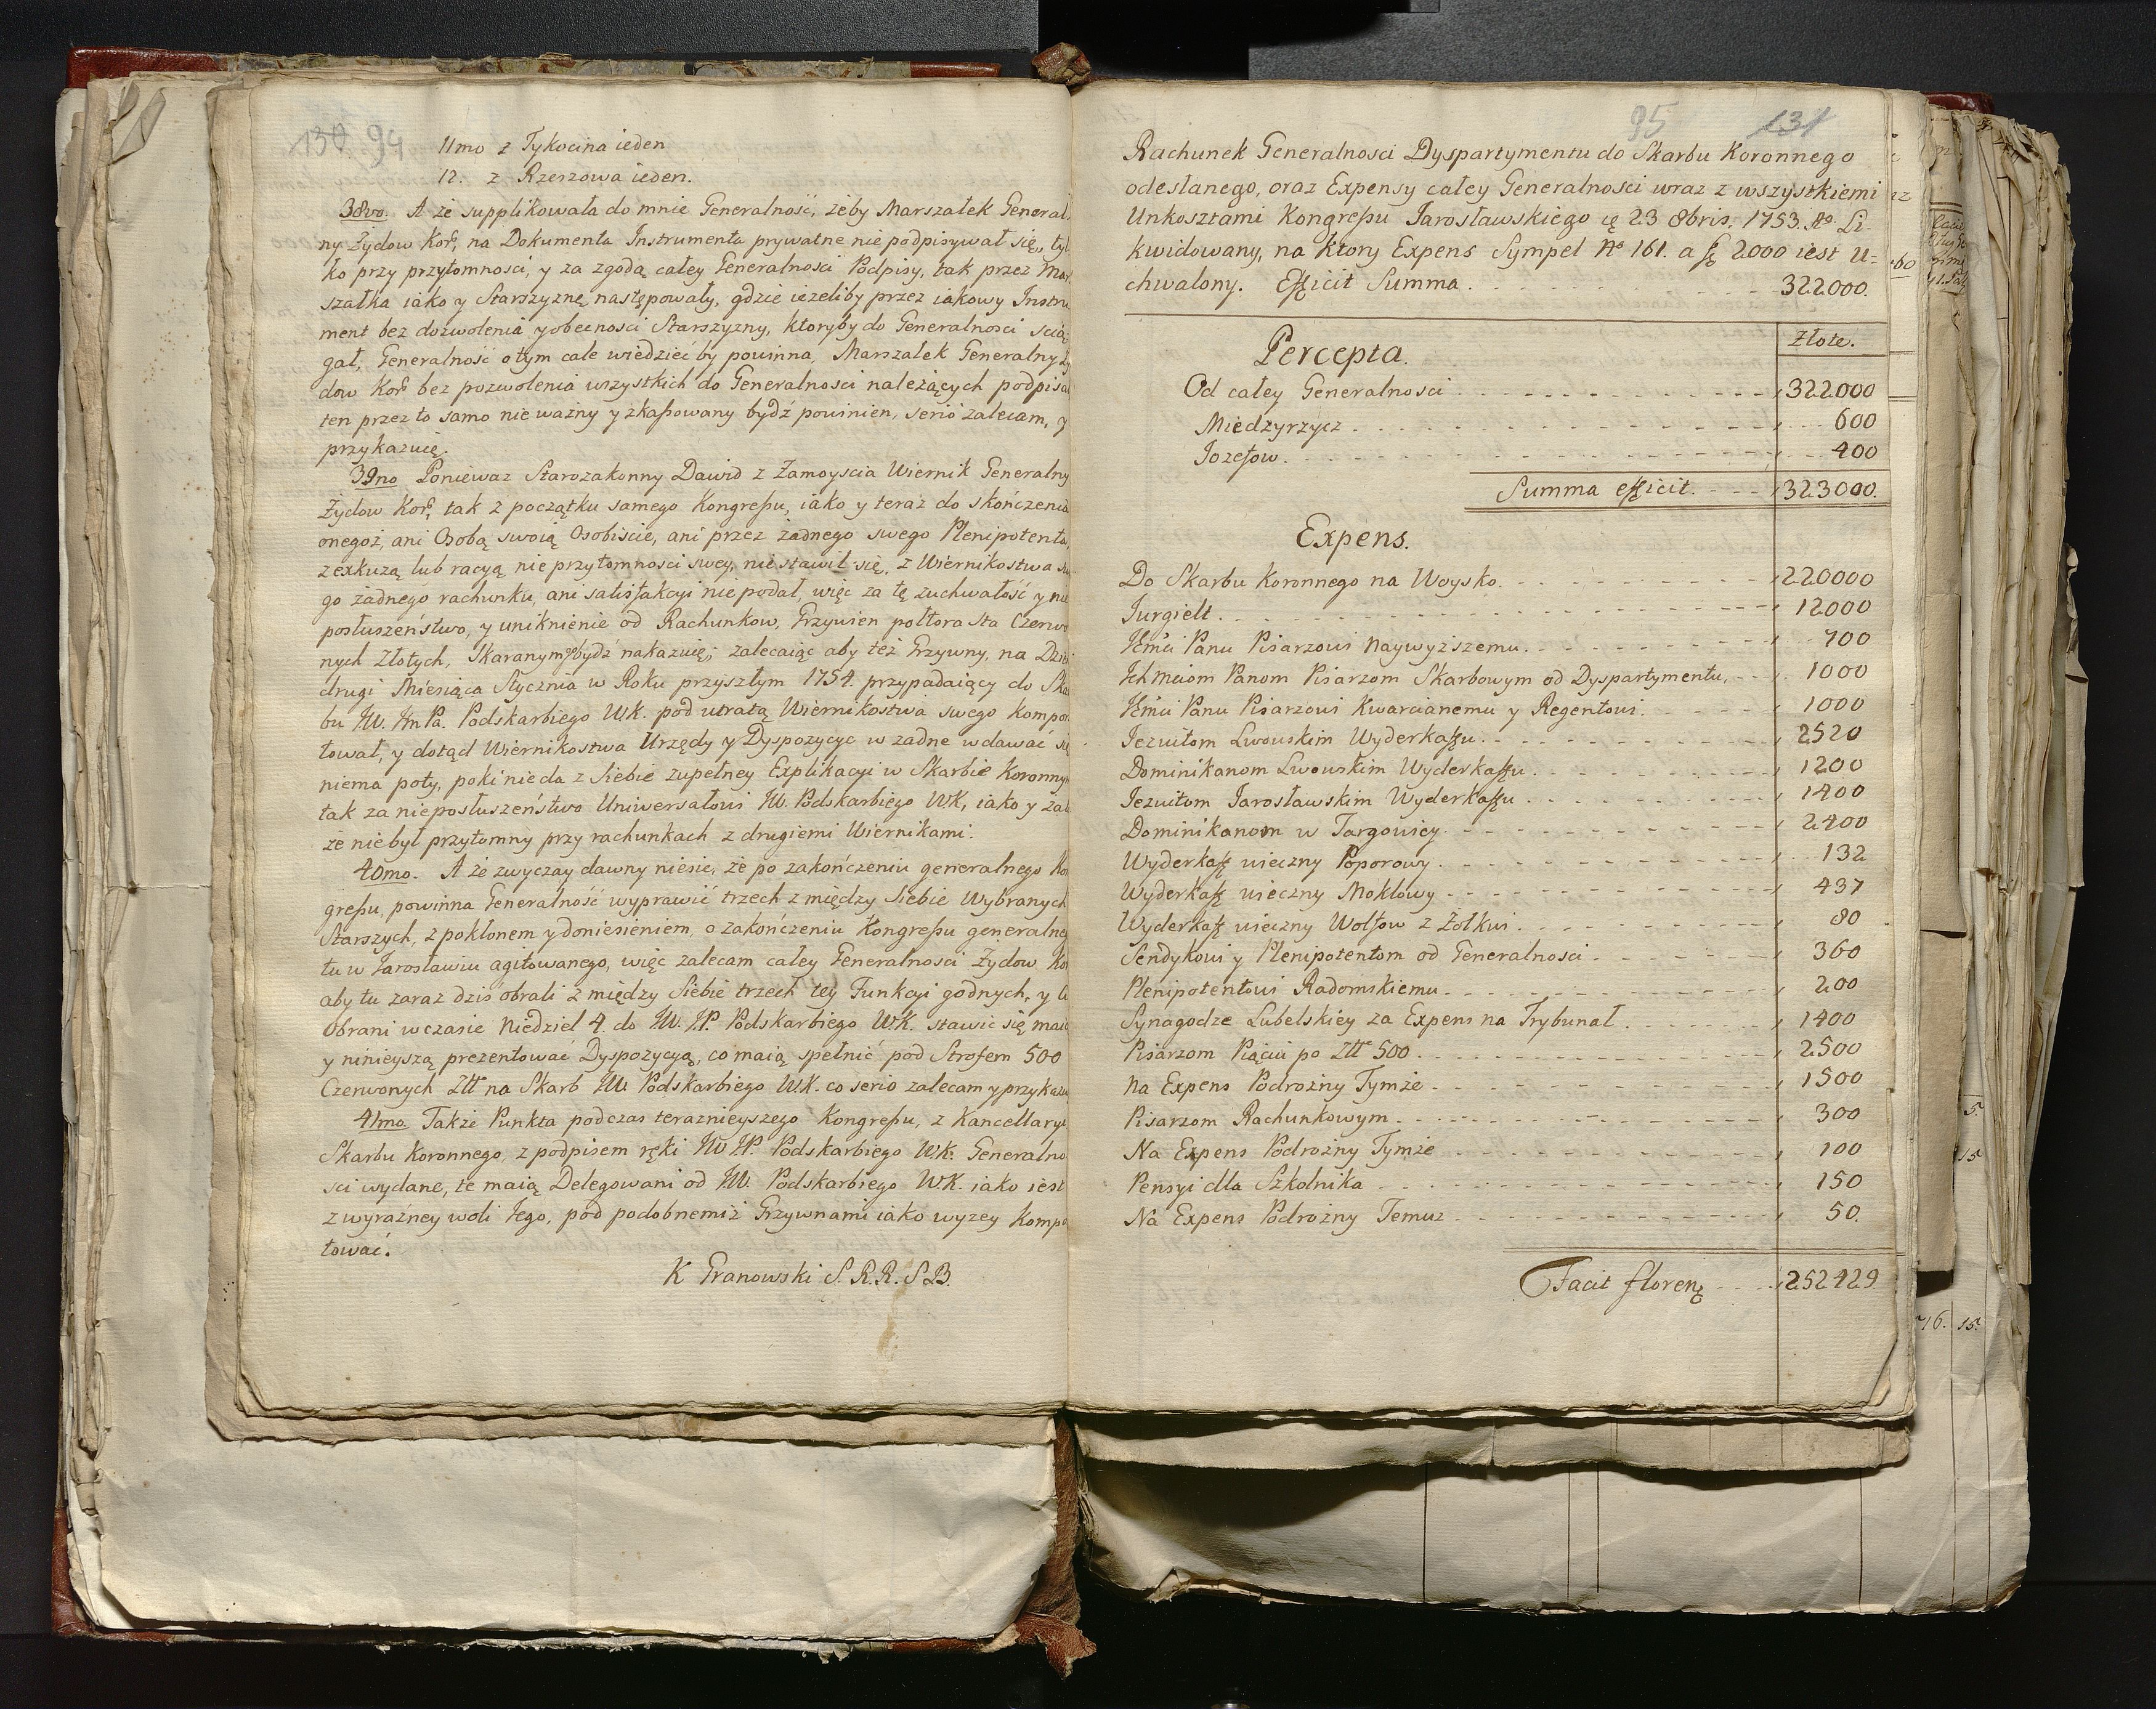 130 94
11mo z Tykocina ieden
12. z Rzeszowa ieden.
38vo. A że supplikowała do mnie Generalność, żeby Marszałek General
ny Żydow Kor, na Dokumenta Instrumenta prywatne nie podpisywał się, tyl
ko przy przytomności, y za zgodą całey Generalności Podpisy, tak przez Mar
szałka iako y Starszyznę następowały, gdzie ieżeliby przez iakowy Instru
ment bez dozwolenia y obecności Starszyzny, ktoryby do Generalności ścią
gał, Generalność o tym cale wiedzieć by powinna, Marszałek Generalny Ży
dow Kor bez pozwolenia wszystkich do Generalności należących podpisał
ten przez to samo nie ważny y zkassowany bydź powinien, serio zalecam, y
przykazuię.
39no Ponieważ Starozakonny Dawid z Zamoyscia Wiernik Generalny
Żydow Kor, tak z początku samego Kongressu, iako y teraz do skończenia
onegoż, ani Osobą swoią Osobiscie, ani przez żadnego swego Plenipotenta,
z exkuzą lub racyą nie przytomności swey, nie stawił się, z Wiernikostwa
go żadnego rachunku, ani satisfakcyi nie podał, więc za tę zuchwałość y nie
posłuszeństwo, y uniknienie od Rachunkow, Grzywien połtora sta Czerwo
nych Złotych, Skaranym bydź nakazuię; zalecaiąc aby też Grzywny, na Dzień
drugi Miesiąca Stycznia w Roku przyszłym 1754. przypadaiący do Skar
bu JW. Jm Pa. Podskarbiego WK. pod utratą Wiernikostwa swego kompor
tował, y dotąd Wiernikostwa Urzędy y Dyspozycye w żadne wdawać się
niema poty, poki nie da z Siebie zupełney Explikacyi w Skarbie Koronnym
tak za nieposłuszeństwo Uniwersałowi JW. Podskarbiego WK, iako y za
że nie był przytomny przy rachunkach z drugiemi Wiernikami.
40mo. A że zwyczay dawny niesie, że po zakończeniu generalnego Kon
gressu, powinna Generalność wyprawić trzech z między Siebie Wybranych
Starszych, z pokłonem y doniesieniem, o zakończeniu Kongressu generalneg
tu w Jarosławiu agitowanego, więc zalecam całey Generalności Żydow Kor
aby tu zaraz dziś obrali z między Siebie trzech tey Funkcyi godnych, y ci
Obrani w czasie Niedziel 4. do JW. JP. Podskarbiego WK. stawić się maią
y ninieyszą prezentować Dyspozycyą, co maią spełnić pod Strofem 500
Czerwonych Złt na Skarb JW. Podskarbiego WK. co serio zalecam y przykazu
41mo Także Punkta podczas teraznieyszego Kongressu, z Kancellaryi
Skarbu Koronnego, z podpisem ręki JW JP. Podskarbiego WK. Generalno
sci wydane, te maią Delegowani od JW. Podskarbiego WK. iako iest
z wyraźney woli Jego, pod podobnemiż Grzywnami iako wyzey Kompor
tować.
K Granowski S. R. R. S B.
95 131
Rachunek Generalnosci Dyspartymentu do Skarbu Koronnego
odesłanego, oraz Expensy całey Generalnosci wraz z wszystkiemi
Unkosztami Kongressu Jarosławskiego 23 8bris. 1753. Ao. Li-
kwidowany, na ktory Expens Sympel No 161. a 2000 iest u-
chwalony. Efficit Summa . . . 322000.
Percepta. Złote.
Od całey Generalnosci . . . 322000
Miedzyrzycz . . . 600
Jozefow . . . 400
Summa efficit. . . . 323000.
Expens.
Do Skarbu Koronnego na Woysko. . . . 220000
Jurgielt . . . 12000
Jchmci Panu Pisarzowi Naywyższemu . . . 700
Jchmciom Panom Pisarzom Skarbowym od Dyspartymentu, . . . 1000
Jchmci Panu Pisarzowi Kwarcianemu y Regentowi . . . 1000
Jezuitom Lwowskim Wyderkaffu . . . 2520
Dominikanom Lwowskim Wyderkaffu . . . 1200
Jezuitom Jarosławskim Wyderkaffu . . . 1400
Dominikanom w Targowicy . . . 2400
Wyderkaff wieczny Poporowy . . . 132
Wyderkaff wieczny Moklowy . . . 437
Wyderkaff wieczny Wolfow z Żołkwi . . . 80
Sendykowi y Plenipotentom od Generalnosci . . . 360
Plenipotentowi Radomskiemu . . . 200
Synagodze Lubelskiey za Expens na Trybunał . . . 1400
Pisarzom Piąciu po Złt 500 . . . 2500
Na Expens Podrożny Tymże . . . 1500
Pisarzom Rachunkowym . . . 300
Na Expens Podrożny Tymże . . . 100
Pensyi dla Szkolnika . . . 150
Na Expens Podrożny Temuz . . . 50.
Facit floren . . . 252429